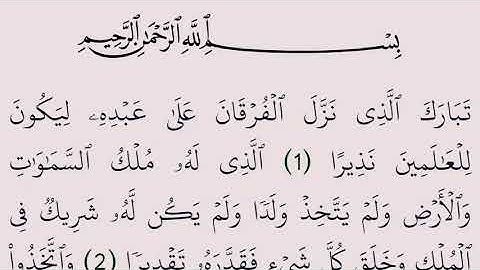 بِسْمِ ٱللَّهِ ٱلرَّحْمَٰنِ ٱلرَّحِيمِ
تَبَارَكَ ٱلَّذِى نَزَّلَ ٱلْفُرْقَانَ عَلَىٰ عَبْدِهِۦ لِيَكُونَ
لِلْعَٰلَمِينَ نَذِيرًا (1) ٱلَّذِى لَهُۥ مُلْكُ ٱلسَّمَٰوَٰتِ
وَٱلْأَرْضِ وَلَمْ يَتَّخِذْ وَلَدًا وَلَمْ يَكُن لَّهُۥ شَرِيكٌ فِى
ٱلْمُلْكِ وَخَلَقَ كُلَّ شَىْءٍ فَقَدَّرَهُۥ تَقْدِيرًا (2) وَٱتَّخَذُوا۟